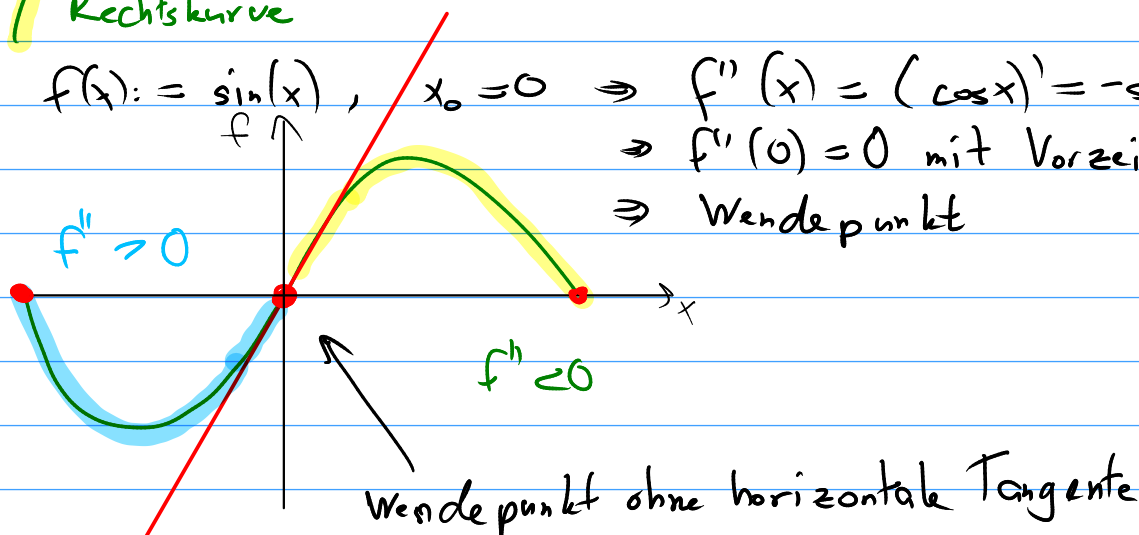 Rechtskurve
f(x) := sin(x) , x₀ = 0 ⇒ f''(x) = (cosx)' = -s
f
⇒ f''(0) = 0 mit Vorzei
⇒ Wendepunkt
f'' > 0
x
f'' < 0
Wendepunkt ohne horizontale Tangente